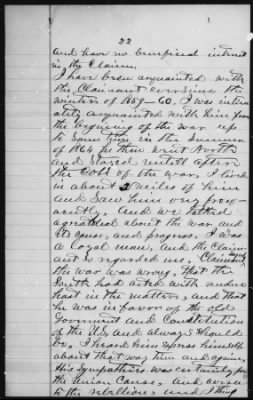 22
and have no beneficial interest
in the Claim.
I have been acquainted with
the Claimant ever since the
winter of 1859-60. I was intim
ately acquainted with him from
the beginning of the war up
to some time in the Summer
of 1864 I then went North
and Stayed untill after
the Close of the war, I lived
in about 2 miles of him
and Saw him very freq-
uently, And we talked
a great deal about the war and
its cause, and progress. I was
a loyal man, and the Claim-
ant So regarded me. Claimant said
the war was wrong, that the
South had acted with undue
haste in the matter, and that
he was in favor of the old
Goverment and Constitution
of the U.S. and always Should
be, I heard him express himself
about that way time and again,
his Sympathies was certainly for
the union Cause, and averse
to the rebellion, and I